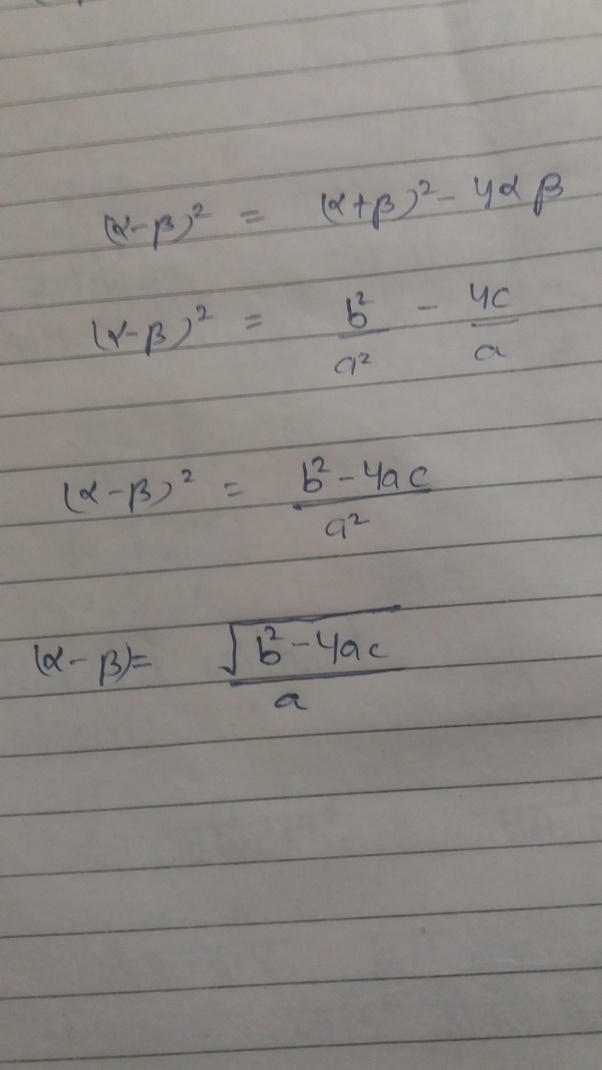 (α-β)² = (α+β)² - 4αβ
(α-β)² = b²/a² - 4c/a
(α-β)² = b²-4ac/a²
(α-β)= √b²-4ac/a